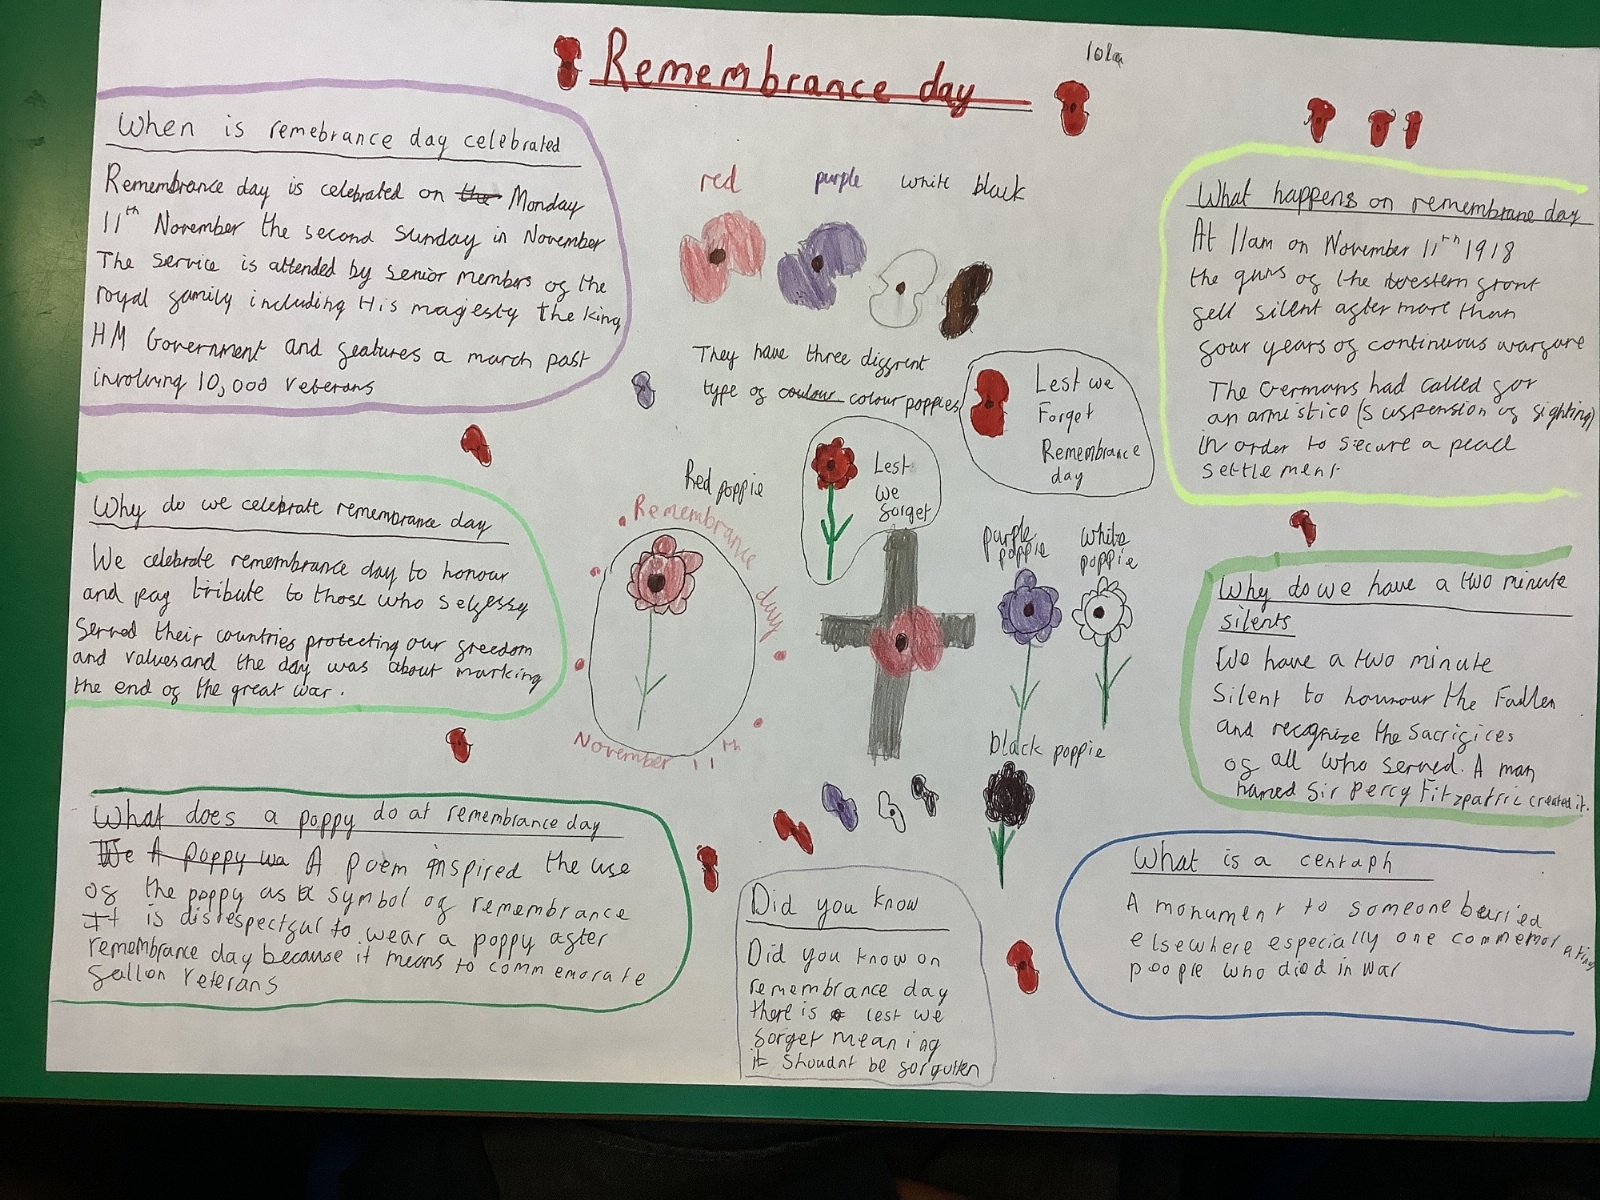 Remembrance day
When is remebrance day celebrated
Remembrance day is celebrated on the Monday
11th November the second Sunday in November
The service is attended by senior members of the
royal family including His magesty the king
HM Government and features a march past
involving 10,000 veterans
red purple white black
They have three diffrent
type of coulour colour poppies
Lest we
Forget
Remembrance
day
What happens on remembrane day
At 11am on November 11th 1918
the guns of the western front
fell silent after more than
four years of continuous warfare
The Germans had called for
an armistice (suspension of fighting)
in order to secure a peace
settlement
Why do we celebrate remembrance day
We celebrate remembrance day to honour
and pay tribute to those who selfessy
Served their countries protecting our freedom
and values and the day was about marking
the end of the great war.
Red poppie
Remembrance day
November 11th
Lest
We
forget
purple
poppie
white
poppie
black poppie
Why do we have a two minute
silents
We have a two minute
Silent to honour the Fallen
and recognize the Sacrifices
of all who served. A man
named Sir Percy Fitzpatric created it.
What does a poppy do at remembrance day
We A poppy wa A poem inspired the use
of the poppy as a symbol of remembrance
It is disrespectful to wear a poppy after
remembrance day because it means to commemorate
fallon veterans
Did you know
Did you know on
remembrance day
there is lest we
forget meaning
it shoudnt be forgutten
What is a centaph
A monument to someone burried
elsewhere especially one commemorating
people who died in war